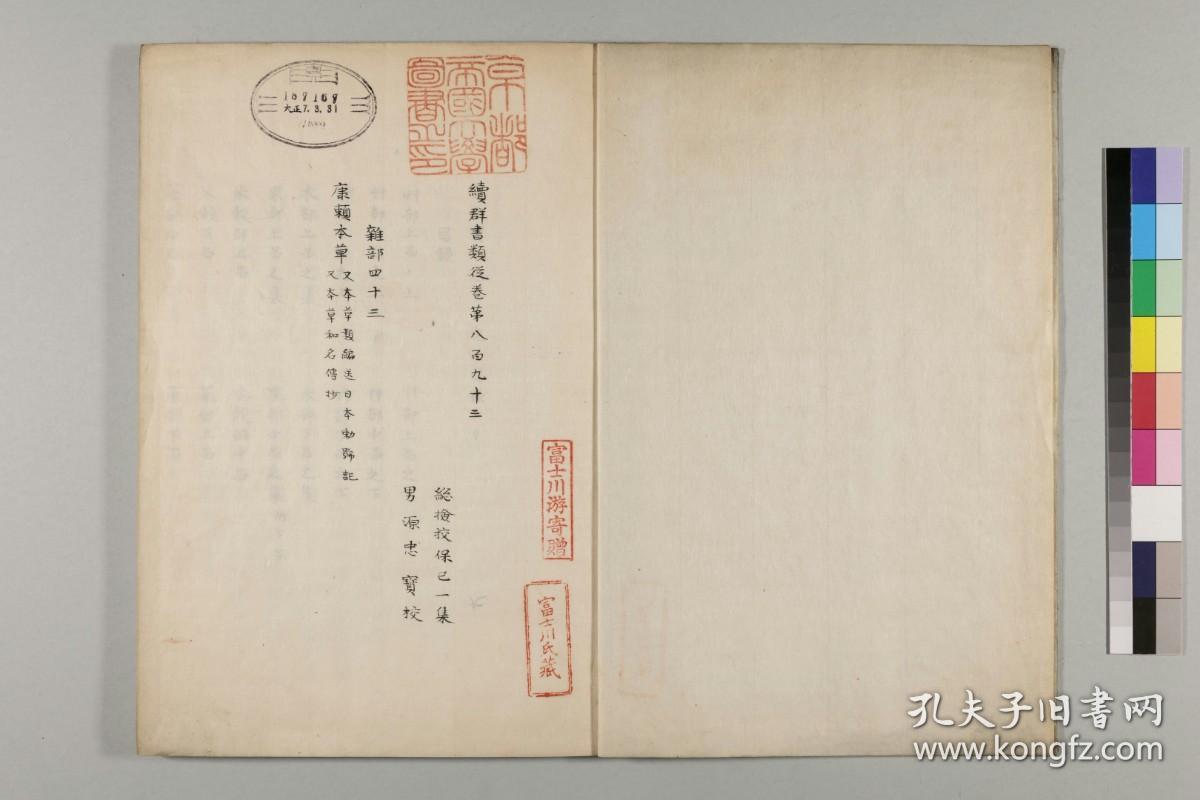 續群書類從卷第八百九十三
総撿挍保己一集
男源忠寶挍
雜部四十三
康頼本草
又本草類編送日本勅號記
又本草和名傳抄
京都
帝國大學
圖書之印
富士川游寄贈
富士川氏藏
189169
大正7.3.31
孔夫子旧书网
www.kongfz.com